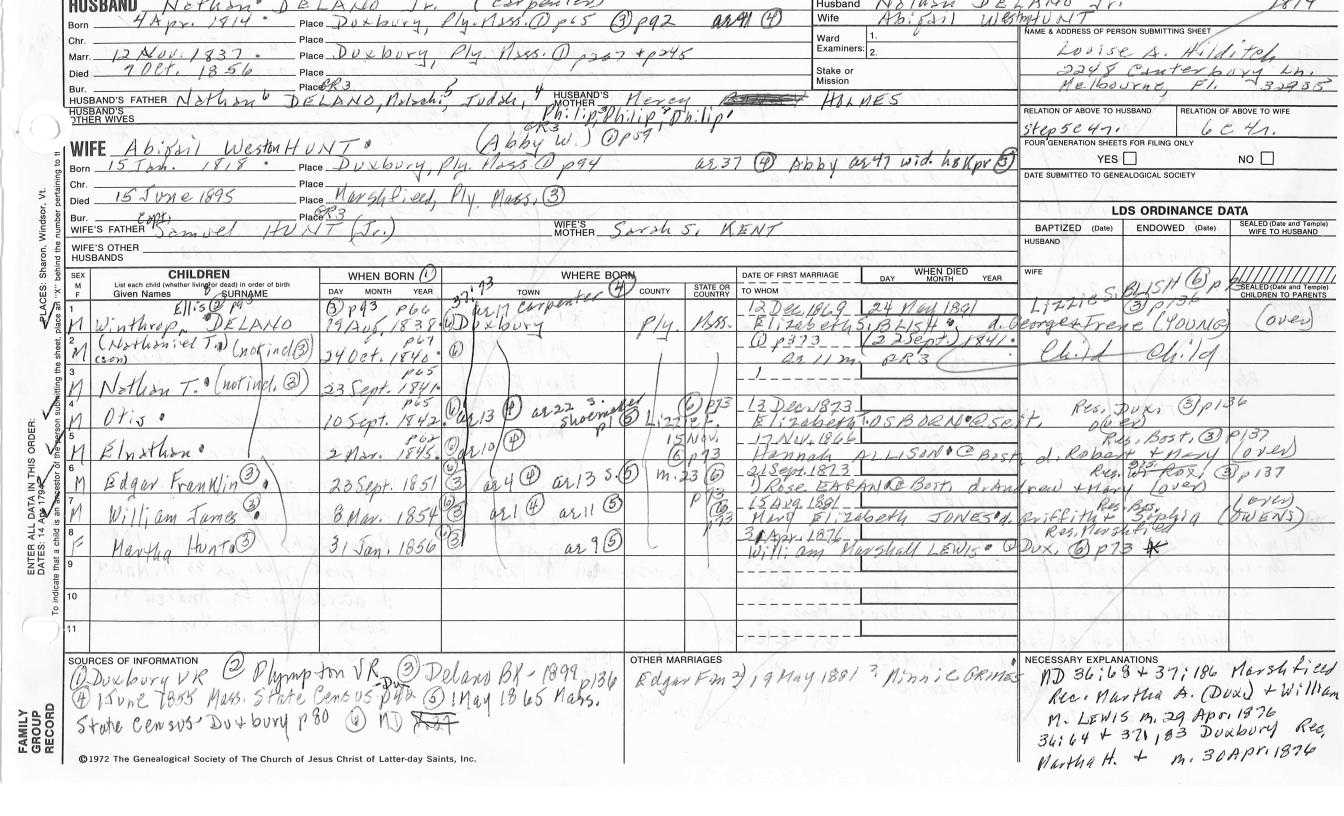 HUSBAND Nathan DELANO Jr. (carpenter)
Born 4 Apr. 1814 Place Duxbury, Ply. Mass. ① p65 ③ p92 ar 41 ④
Chr. Place
Marr. 12 Nov. 1837 Place Duxbury, Ply. Mass. ① p267 + p245
Died 7 Oct. 1856 Place
Bur. Place CR3
HUSBAND'S FATHER Nathan⁶ DELANO, Malachi⁵, Judah,⁴ HUSBAND'S MOTHER Mercy HOLMES
Philip³ Philip² Philip¹
HUSBAND'S OTHER WIVES
Husband Nathan DELANO Jr. 1814
Wife Abigail Weston HUNT
Ward Examiners: 1.
2.
Stake or Mission
NAME & ADDRESS OF PERSON SUBMITTING SHEET
Louise A. Hilditch
2248 Canterbury Ln.
Melbourne, Fl. 32935
RELATION OF ABOVE TO HUSBAND RELATION OF ABOVE TO WIFE
step 5C 4r. 6C 4r.
FOUR GENERATION SHEETS FOR FILING ONLY
YES NO
DATE SUBMITTED TO GENEALOGICAL SOCIETY
WIFE Abigail Weston HUNT (Abby W.) CR3 ① p59
Born 15 Jan. 1818 Place Duxbury, Ply. Mass ① p94 ar 37 ④ Abby ar 47 wid. hsKpr ⑤
Chr. Place
Died 15 June 1895 Place Marshfield, Ply. Mass. ③
Bur. Place CR3
WIFE'S FATHER Capt. Samuel HUNT (Jr.) WIFE'S MOTHER Sarah S. KENT
WIFE'S OTHER HUSBANDS
LDS ORDINANCE DATA
BAPTIZED (Date) ENDOWED (Date) SEALED (Date and Temple) WIFE TO HUSBAND
HUSBAND
WIFE
SEALED (Date and Temple) CHILDREN TO PARENTS
SEX M F CHILDREN
List each child (whether living or dead) in order of birth
Given Names SURNAME
WHEN BORN ①
DAY MONTH YEAR
WHERE BORN
TOWN COUNTY STATE OR COUNTRY
DATE OF FIRST MARRIAGE
TO WHOM
WHEN DIED
DAY MONTH YEAR
1 M Winthrop Ellis ② p93 DELANO ③ p93 p66 19 Aug. 1838 37:73 Duxbury ar 17 carpenter ④ Ply. Mass. 12 Dec. 1869 24 May 1891
Elizabeth S. BLISH d. George + Irene (YOUNG) Lizzie S. BLISH ⑥ ③ p136 (over)
2 M (Nathaniel T.) (not in ③) (son) p67 24 Oct. 1840 ⑥ ① p373 (22 Sept.) 1841
ar 11 m. CR3 Child Child
3 M Nathan T. (not in ③) p65 23 Sept. 1841
4 M Otis p65 10 Sept. 1842 ⑥ ar 13 ④ ar 22 S. shoemaker p1 ⑤ Lizzie F. ⑥ p73 13 Dec. 1873
Elizabeth F. OSBORN @ Res. Dux. ③ p136 (over)
5 M Elnathan p62 2 Mar. 1845 ar 10 ④ 15 Nov. ⑥ p73 17 Nov. 1866
Hannah ALLISON @ Bost. d. Robert + Mary (over) Res. Bost. ③ p137
6 M Edgar Franklin ③ 23 Sept. 1851 ar 4 ④ ar 13 S. ⑤ m. 23 ⑥ p73 21 Sept. 1873
1) Rose EAGAN @ Bost d. Andrew + Mary (over) Res. Rox, ③ p137
7 M William James ③ 8 Mar. 1854 ③ ar 1 ④ ar 11 ⑤ ⑥ p73 15 Aug. 1881
Mary Elizabeth JONES d. Griffith + Sophia (OWENS) (over)
8 F Martha Hunt ③ 31 Jan. 1856 ③ ar 9 ⑤ Apr. 1876
William Marshall LEWIS @ Dux. ⑥ p73 Res. Marshfield
9
10
11
SOURCES OF INFORMATION
① Duxbury VR ② Plympton VR ③ Delano BK - 1899 p136
④ 1 June 1855 Mass. State Census - Dux ⑤ 1 May 1865 Mass.
State Census - Duxbury p80 ⑥ MD
OTHER MARRIAGES
Edgar F m 2) 19 May 1881 ? Minnie GRIMES
NECESSARY EXPLANATIONS
MD 36:68 + 37:186 Marshfield
Rec. Martha A. (Dux) + William
M. LEWIS m. 29 Apr. 1876
36:64 + 37:183 Duxbury Rec.
Martha H. + m. 30 Apr. 1876
©1972 The Genealogical Society of The Church of Jesus Christ of Latter-day Saints, Inc.
FAMILY GROUP RECORD
ENTER ALL DATA IN THIS ORDER:
DATES: 14 Apr 1794
PLACES: Sharon, Windsor, Vt.